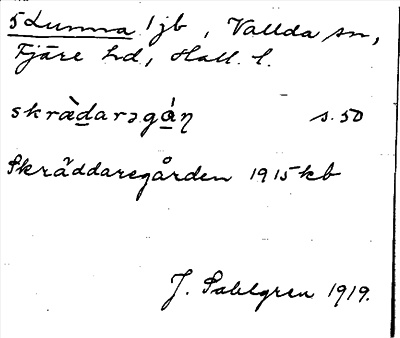 5 Lunna 1 jb , Vallda sn,
Fjäre hd, Hall. l.
skrä̀darəgá̱ṇ s. 50
Skräddaregården 1915 kb
J. Sahlgren 1919.